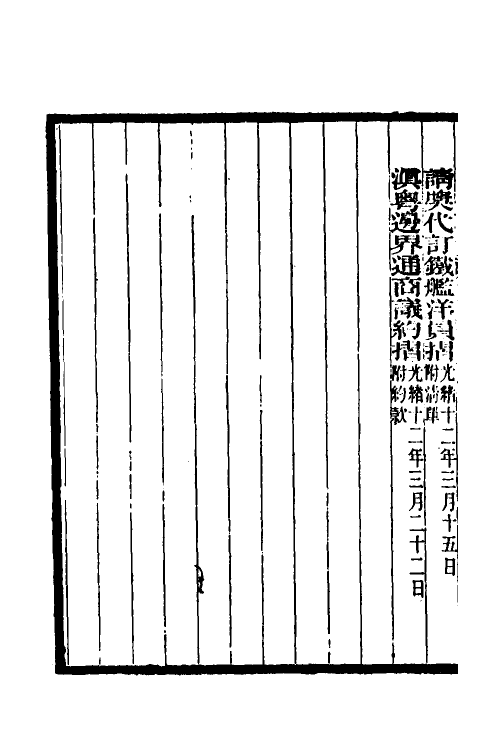 請獎代訂鐵艦洋員摺光緒十二年三月十五日附清單
滇粵邊界通商議約摺光緒十二年三月二十二日附約款